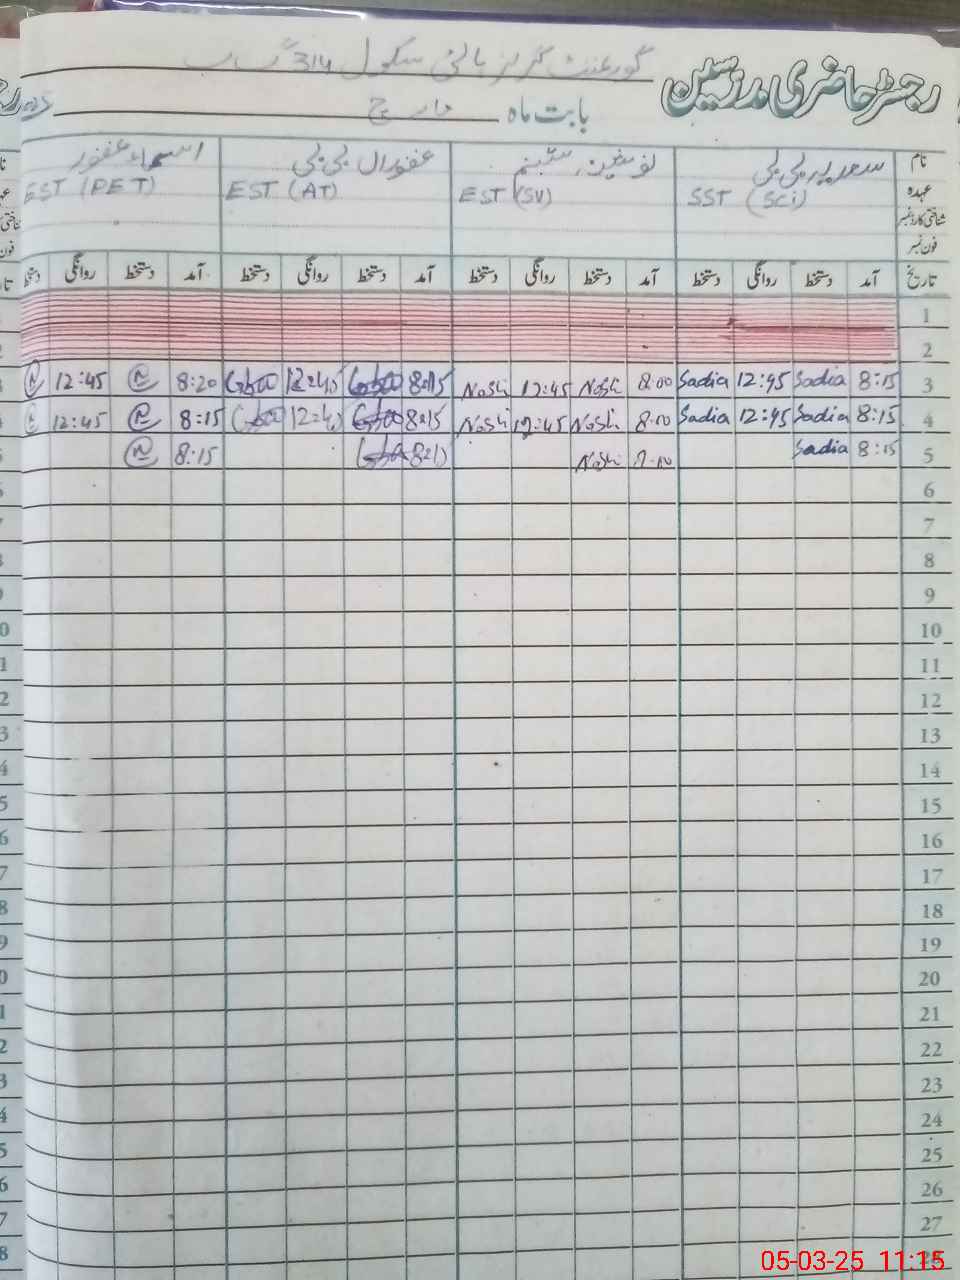 رجسٹر حاضری مدرسین گورنمنٹ گرلز ہائی سکول 314 گ ب
بابت ماہ مارچ
نام سعدیہ بی بی نوشین شبنم غفوراں بی بی اسماء غفور
عہدہ SST (SCi) EST (SV) EST (AT) EST (PET)
شناختی کارڈ نمبر
فون نمبر
تاریخ آمد دستخط روانگی دستخط آمد دستخط روانگی دستخط آمد دستخط روانگی دستخط آمد دستخط روانگی
1
2
3 8:15 Sadia 12:45 Sadia 8:00 Noshi 12:45 Noshi 8:15 12:45 8:20 12:45
4 8:15 Sadia 12:45 Sadia 8:00 Noshi 12:45 Noshi 8:15 12:45 8:15 12:45
5 8:15 Sadia 8:00 Noshi 8:15 8:15
6
7
8
9
10
11
12
13
14
15
16
17
18
19
20
21
22
23
24
25
26
27
28
05-03-25 11:15